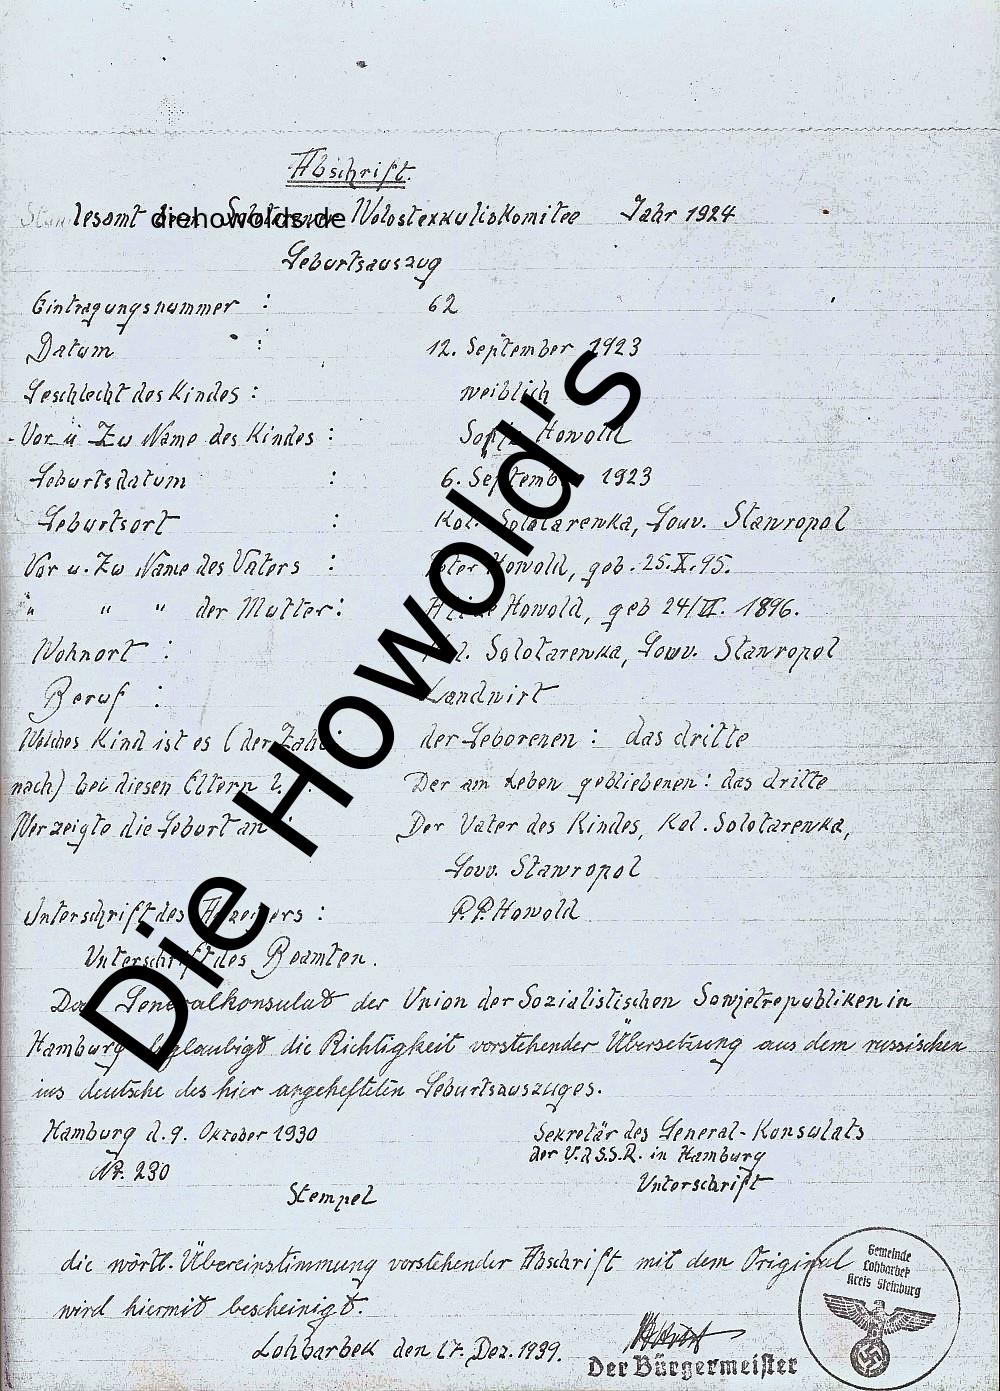 Abschrift.
Standesamt beim Wolostexkutiskomitee Jahr 1924
diehowolds.de
Geburtsauszug
Eintragungsnummer : 62
Datum : 12. September 1923
Geschlecht des Kindes : weiblich
Vor u Zu Name des Kindes : Howold
Geburtsdatum : 6. September 1923
Geburtsort : Kol. Solotarenka, Gouv. Stawropol
Vor u. Zu Name des Vaters : Peter Howold, geb. 25.X.95.
" " " der Mutter: Howold, geb 24/VI. 1896.
Wohnort : Kol. Solotarenka, Gouv. Stawropol
Beruf : Landwirt
Welches Kind ist es (der Zahl der Geborenen : das dritte
nach) bei diesen Eltern ? Der am Leben gebliebenen : das dritte
Wer zeigte die Geburt an : Der Vater des Kindes, Kol. Solotarenka,
Gouv. Stawropol
Unterschrift des Anzeigers : P.P. Howold
Unterschrift des Beamten.
Das Generalkonsulat der Union der Sozialistischen Sowjetrepubliken in
Hamburg beglaubigt die Richtigkeit vorstehender Übersetzung aus dem russischen
ins deutsche des hier angehefteten Geburtsauszuges.
Hamburg d. 9. Oktober 1930 Sekretär des General-Konsulats
der U.d.S.S.R. in Hamburg
Nr. 230 Unterschrift
Stempel
die wörtl. Übereinstimmung vorstehender Abschrift mit dem Original
wird hiermit bescheinigt.
Lohbarbek den 17. Dez. 1939.
Der Bürgermeister
Gemeinde
Lohbarbek
Kreis Steinburg
Die Howold's